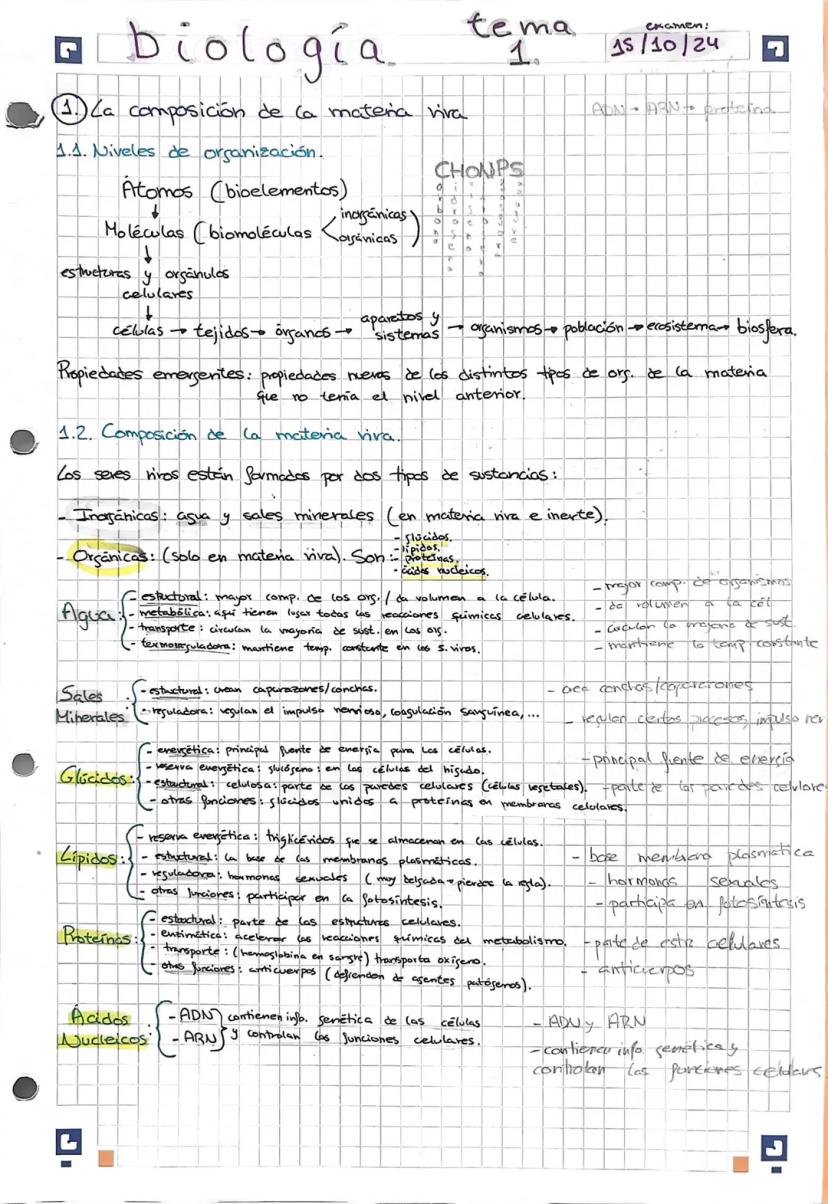 biología
tema
1.
examen:
15/10/24
1. La composición de la materia viva
ADN → ARN → proteína
1.1. Niveles de organización.
CHONPS
Átomos (bioelementos)
Moléculas (biomoléculas inorgánicas orgánicas)
estructuras y orgánulos
celulares
células → tejidos → órganos → aparatos y sistemas → organismos → población → ecosistema → biosfera.
Propiedades emergentes: propiedades nuevas de los distintos tipos de org. de la materia
que no tenía el nivel anterior.
1.2. Composición de la materia viva.
Los seres vivos están formados por dos tipos de sustancias:
- Inorgánicas: agua y sales minerales (en materia viva e inerte).
- Orgánicas: (solo en materia viva). Son:
- glúcidos.
- lípidos.
- proteínas.
- ácidos nucleicos.
Agua:
- estructural: mayor comp. de los org. / da volumen a la célula.
- metabólica: aquí tienen lugar todas las reacciones químicas celulares.
- transporte: circulan la mayoría de sust. en los org.
- termoreguladora: mantiene temp. constante en los s. vivos.
- mayor comp. de organismos
- da volumen a la cél
- circulan la mayoría de sust.
- mantiene la temp constante
Sales
Minerales
- estructural: crean caparazones/conchas.
- reguladora: regulan el impulso nervioso, coagulación sanguínea, ...
- regulan ciertos procesos, impulso ner
Glúcidos:
- energética: principal fuente de energía para las células.
- reserva energética: glucógeno: en las células del hígado.
- estructural: celulosa: parte de las paredes celulares (células vegetales).
- otras funciones: glúcidos unidos a proteínas en membranas celulares.
- principal fuente de energía
- parte de las paredes celulare
Lípidos:
- reserva energética: triglicéridos que se almacenan en las células.
- estructural: la base de las membranas plasmáticas.
- reguladora: hormonas sexuales (muy delgada → pierdes la regla).
- otras funciones: participar en la fotosíntesis.
- base membrana plasmática
- hormonas sexuales
- participa en fotosíntesis
Proteínas:
- estructural: parte de las estructuras celulares.
- enzimática: acelerar las reacciones químicas del metabolismo.
- transporte: (hemoglobina en sangre) transporta oxígeno.
- otras funciones: anticuerpos (defienden de agentes patógenos).
- parte de estr celulares
- anticuerpos
Ácidos
Nucleicos:
- ADN
- ARN
contienen info. genética de las células
y controlan las funciones celulares.
- ADN y ARN
- contienen info genética y
controlan las funciones celulares